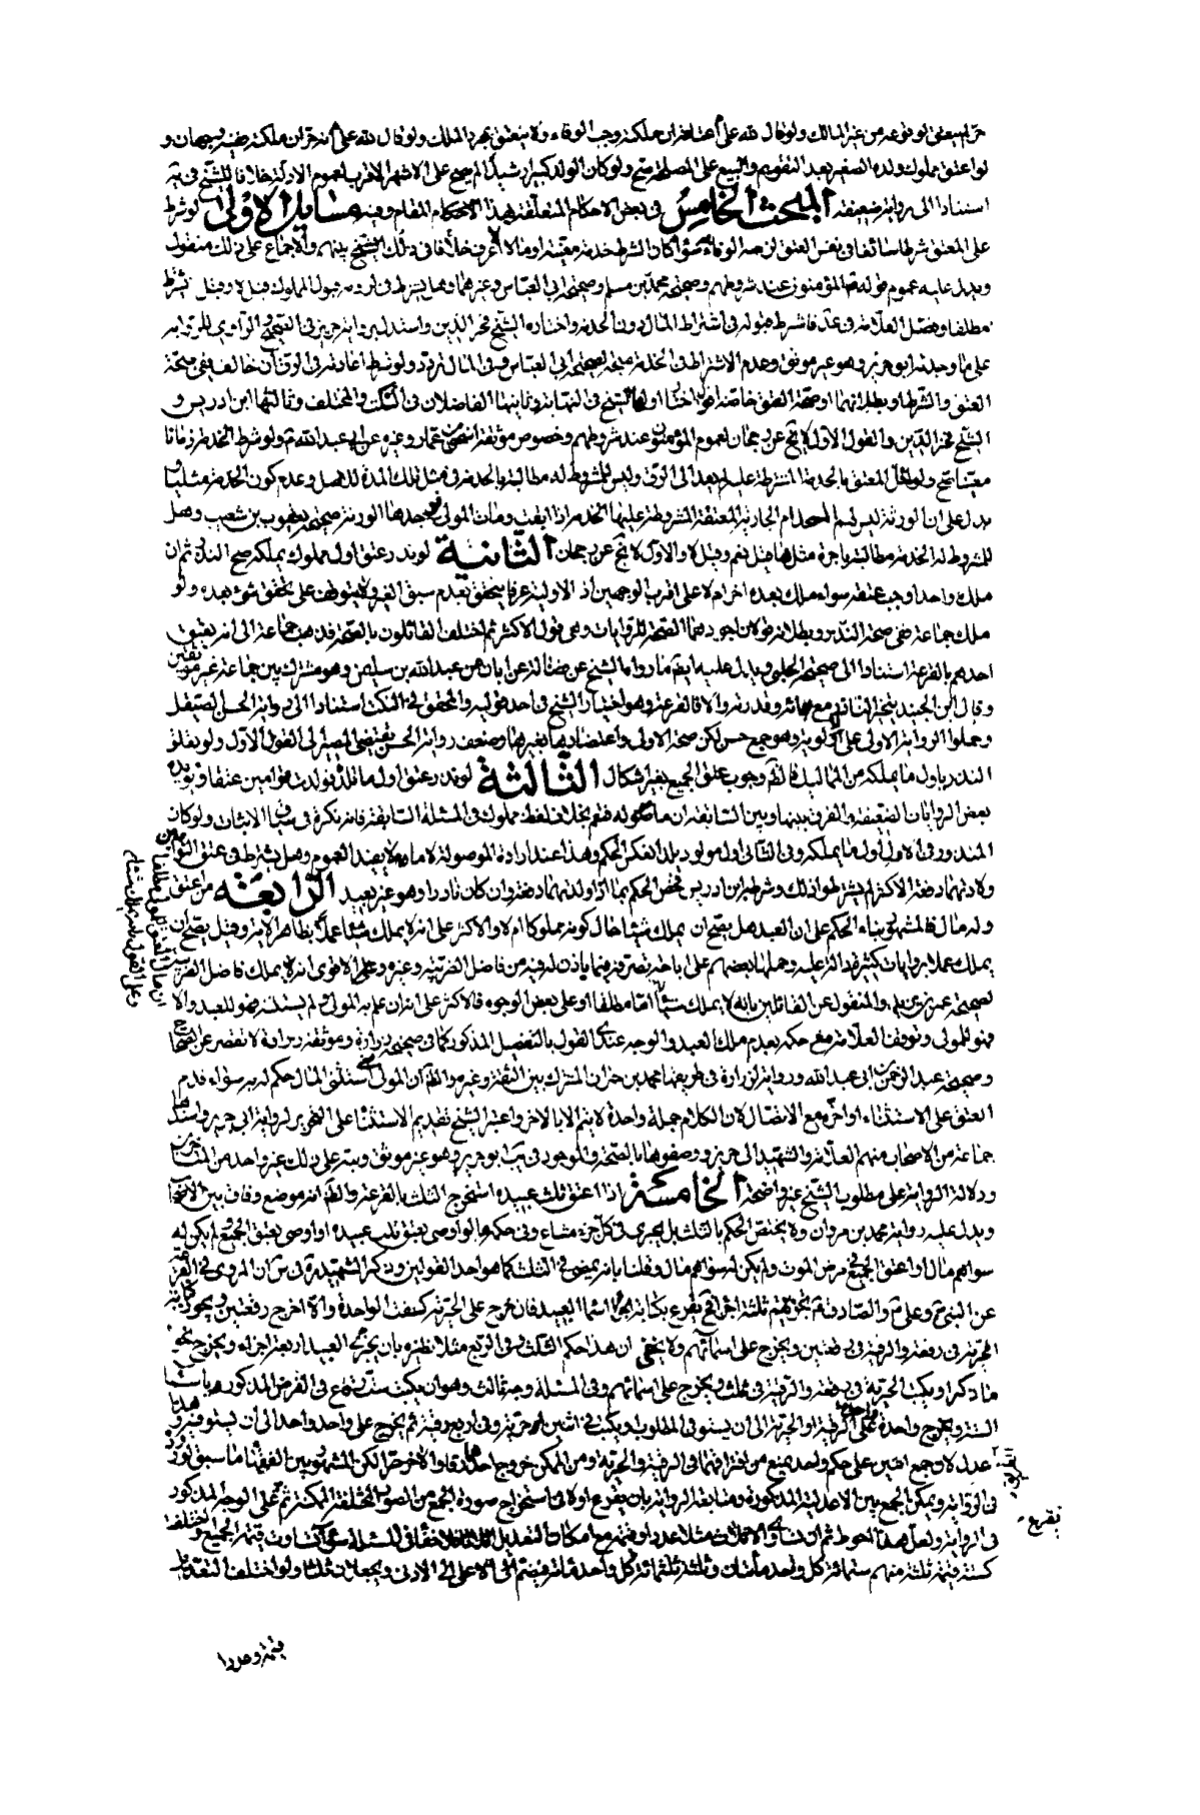 حرا لم يعتق لوقوعه من غير المالك ولو قال لله علي اعتاقه ان ملكته وجب الوفاء ولا ينعتق بمجرد الملك ولو قال لله علي انه حر ان ملكته ففيه وجهان و
لو اعتق مملوك ولده الصغير بعد التقويم والبيع على المصلحة صح ولو كان الولد كبيرا رشيدا لم يصح على الاشهر الاقرب لعموم الادلة خلافا للشيخ في يه
استنادا الى رواية ضعيفة المبحث الخامس في بعض الاحكام المتعلقة بهذا المقام وفيه مسايل الاولى لو شرط
على المعتق شرطا سائغا في نفس العتق لزمه الوفاء به سواء كان الشرط خدمة معينة او مالا لا اعرف خلافا في ذلك بينهم والاجماع على ذلك منقول
ويدل عليه عموم قوله المؤمنون عند شروطهم وصحيحة محمد بن مسلم وصحيحة ابي العباس وغيرهما وهل يشترط في لزومه قبول المملوك قيل لا وقيل يشترط
مطلقا وفصل العلامة في عد فاشترط قبوله في اشتراط المال دون الخدمة واختاره الشيخ فخر الدين واستدل برواية حريز في الصحيح والراوي للرواية
على ما وجدنته ابو حريز وهو غير موثق وعدم الاشتراط في الخدمة متجه لصحيحة ابي العباس وفي المال تردد ولو شرط اعادته في الرق ان خالف ففي صحة
العتق والشرط او بطلانهما او صحة العتق خاصة اقوال اختار اولها الشيخ في النهاية وثانيها الفاضلان في النكت والمختلف وثالثها ابن ادريس و
الشيخ فخر الدين والقول الاول لا يخ عن رجحان لعموم المؤمنون عند شروطهم وخصوص موثقة اسحق بن عمار وغيره عن ابي عبد الله ولو شرط الخدمة زمانا
معينا صح ولو اخل المعتق بالخدمة المشترطة عليه لم يعد الى الرق وليس للمشروط له مطالبته بالخدمة في مثل تلك المدة للاصل وعدم كون الخدمة مثليا و
يدل على ان الورثة ليس لهم استخدام الجارية المعتقة المشروطة عليها الخدمة اذا ابقت ومات المولى فوجدها الورثة صحيحة يعقوب بن شعيب وهل
للمشروط له الخدمة مطالبته باجرة مثلها قيل نعم وقيل لا والاول لا يخ عن رجحان الثانية لو نذر عتق اول مملوك يملكه صح النذر ثم ان
ملك واحدا وجب عتقه سواء ملك بعده اخر ام لا على اقرب الوجهين اذ الاولية عرفا يتحقق بعدم سبق الغير ولا يتوقف على تحقق شيء بعده ولو
ملك جماعة ففي صحة النذر وبطلانه قولان اجودهما الصحة للروايات وهي قول الاكثر ثم اختلف القائلون بالصحة فذهب جماعة الى انه يعتق
احدهم بالقرعة استنادا الى صحيحة الحلبي ويدل عليه ايضا ما رواه الشيخ عن فضالة عن ابان عن عبد الله بن سليمن وهو مشترك بين جماعة غير موثقين
وقال ابن الجنيد يتخير الناذر مع بقائه وقدرته والا فالقرعة وهو اختيار الشيخ في احد قوليه والمحقق في النكت استنادا الى رواية الحسن الصيقل
وحملوا الرواية الاولى على الاولوية وهو جمع حسن لكن صحة الاولى واعتضادها بغيرها وضعف رواية الحسن يقتضي المصير الى القول الاول ولو تعلق
النذر باول ما يملكه من المماليك فالظ وجوب عتق الجميع بغير اشكال الثالثة لو نذر عتق اول ما تلده فولدت توامين عتقا ويؤيده
بعض الروايات الضعيفة والفرق بينها وبين السابقة ان ما موصولة فتعم بخلاف لفظ مملوك في المسئلة السابقة فانه نكرة في سياق الاثبات ولو كان
المنذور في الاول اول ما يملكه وفي الثاني اول مولود تلده انعكس الحكم وهذا عند ارادة الموصولة لا ما لا يفيد العموم وهل يشترط في عتق التوامين
ولادتهما دفعة الاكثر لم يشترطوا ذلك وشرطه ابن ادريس فخص الحكم بما اذا ولدتهما دفعة وان كان نادرا وهو غير بعيد الرابعة من اعتق
وله مال فالمشهور بناء الحكم على ان العبد هل يصح ان يملك شيئا حال كونه مملوكا ام لا والاكثر على انه لا يملك شيئا عملا بظاهر الاية وقيل يصح ان
يملك عملا بروايات كثيرة دالة عليه وحملها بعضهم على اباحة تصرفه فيما ياذن له فيه من فاضل الضريبة وغيره وعلى الاقوى انه لا يملك فاضل الضريبة
لصحيحة عمر بن يزيد والمنقول عن القائلين بانه لا يملك شيئا اما مطلقا او على بعض الوجوه فالاكثر على انه ان علم به المولى ولم يستثنه فهو للعبد والا
فهو للمولى وتوقف العلامة مع حكمه بعدم ملك العبد والوجه عندي القول بالتفصيل المذكور كما في صحيحة زرارة وموثقة زرارة لا تقصر عن الصحاح
وصحيحة عبد الرحمن بن ابي عبد الله ورواية لزرارة في طريقها محمد بن حمران المشترك بين الثقة وغيره والظ ان المولى متى استثنى المال حكم له به سواء قدم
العتق على الاستثناء او اخره مع الاتصال لان الكلام جملة واحدة لا يتم الا بالاخر واعتبر الشيخ تقديم الاستثناء على التحرير لرواية ابي جرير واسندها
جماعة من الاصحاب منهم العلامة والشهيد الى حريز ووصفوها بالصحة والموجود في يب ابو جرير وهو غير موثق ونبه على ذلك غير واحد من المتاخرين
ودلالة الرواية على مطلوب الشيخ غير واضحة الخامسة اذا اعتق ثلث عبيده استخرج الثلث بالقرعة والظ انه موضع وفاق بين الاصحاب
ويدل عليه رواية محمد بن مروان ولا يختص الحكم بالثلث بل يجري في كل جزء مشاع وفي حكمه ما لو اوصى بعتق ثلث عبيده او اوصى بعتق الجميع ولم يكن له
سواهم مال او اعتق الجميع في مرض الموت ولم يكن له سواهم مال وقلنا بانه يمضي في الثلث كما هو احد القولين وذكر الشهيد في ان المروي في القرعة
عن النبي وعلي والصادق تجزيتهم ثلثة اجزاء ثم يقرع بكتابة اسماء العبيد فان خرج على الحرية كفت الواحدة والا اخرج رقعتين ويجوز كتابة
الحرية في رقعة والرقية في رقعتين ويخرج على اسمائهم ولا يخفى ان هذا حكم الثلث وفي الربع مثلا نظيره بان يجزى العبيد اربعة اجزاء ويخرج بنحو
ما ذكر او يكتب الحرية في رقعة والرقية في ثلث ويخرج على اسمائهم وفي المسئلة وجه ثالث وهو ان يكتب ست رقاع في الفرض المذكور باسماء
الستة ويخرج واحدة واحدة على الرقية او الحرية الى ان يستوفى المطلوب او يكتب في اثنين حرية وفي اربع رقية ثم يخرج على واحد واحد الى ان يستوفيه وهذا
عدل لان جمع اثنين على حكم واحد يمنع من افتراقهما في الرقية والحرية ومن الممكن خروج احدهما رقا والاخر حرا لكن المشهور بين الفقهاء ما سبق لوروده
في الرواية ويمكن الجمع بين الاعدلية المذكورة ومتابعة الرواية بان يقرع اولا في استخراج صورة الجمع من الصور المختلفة الممكنة ثم على الوجه المذكور
في الرواية ولعل هذا احوط ثم ان تساوى الاثلاث مثلا عددا وقيمة مع امكان التعديل فلا خفاء في المسئلة سواء تساوت قيمة الجميع او اختلفت
كستة قيمة ثلثة منهم ستمائة كل واحد مائتان وثلثة ثلثمائة كل واحد مائة فيضم الاعلى الى الادنى ويجعلان ثلثا ولو اختلف التعديل
وعلى القول
تفريع
قيمة وعددا